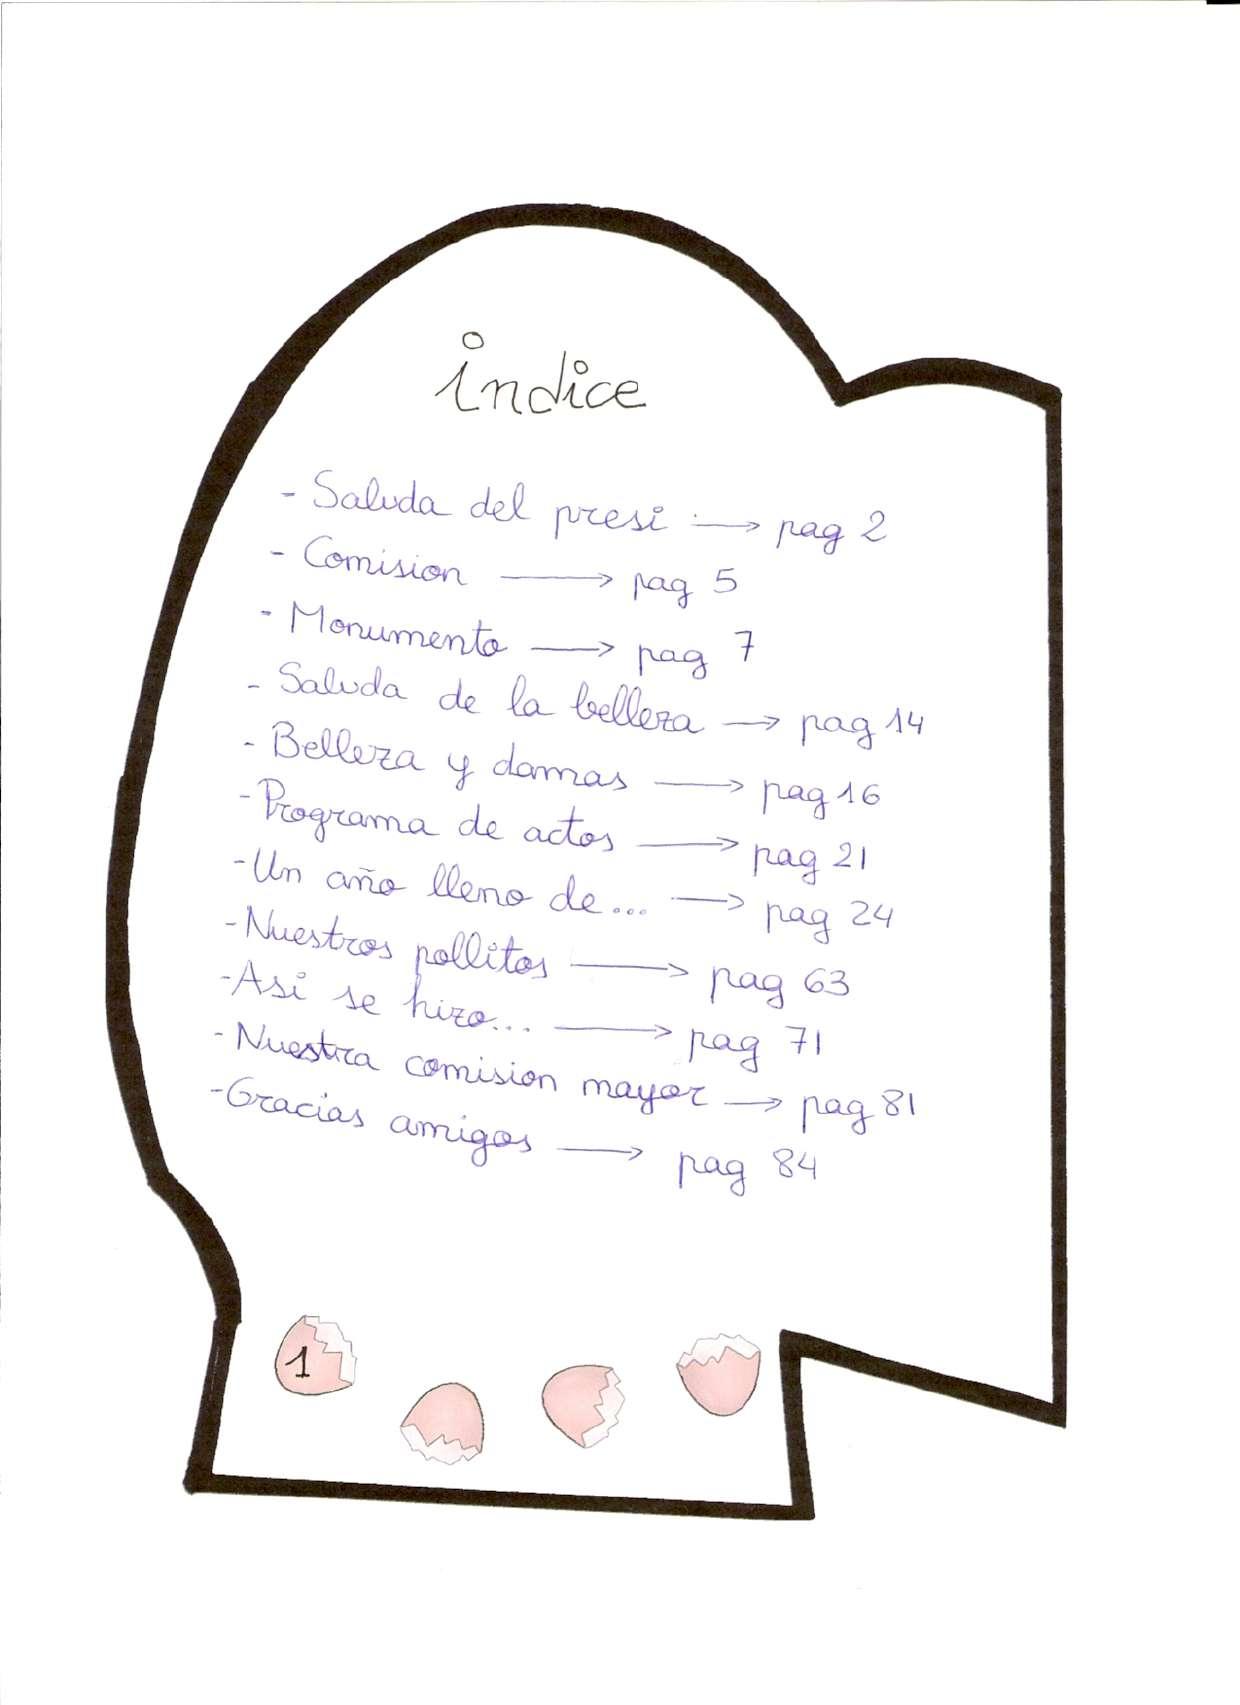 indice
- Saluda del presi → pag 2
- Comision → pag 5
- Monumento → pag 7
- Saluda de la belleza → pag 14
- Belleza y damas → pag 16
- Programa de actos → pag 21
- Un año lleno de... → pag 24
- Nuestros pollitos → pag 63
- Asi se hizo... → pag 71
- Nuestra comision mayor → pag 81
- Gracias amigos → pag 84
1